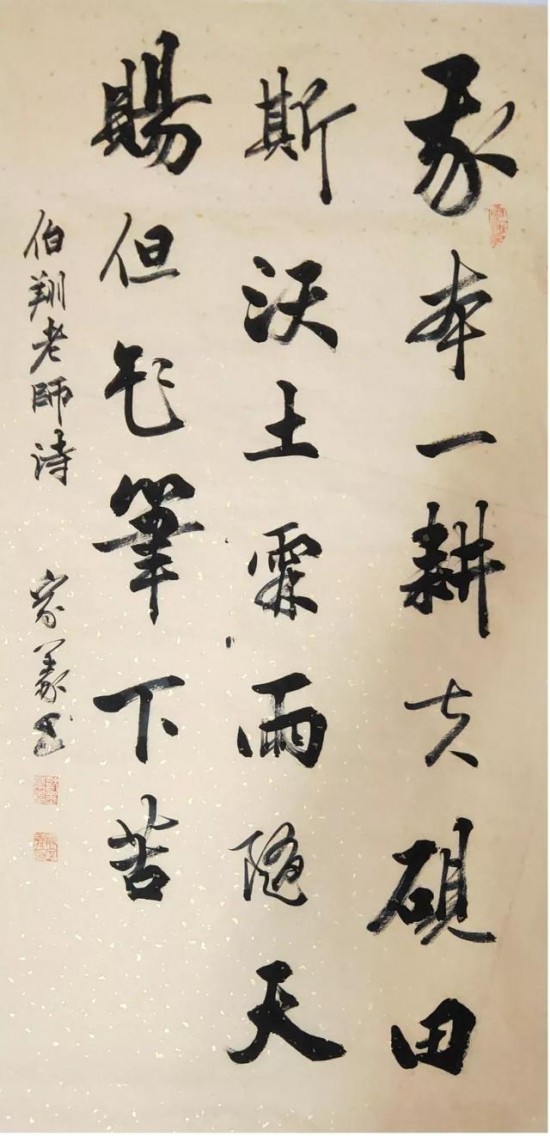 我本一耕夫硯田
斯沃土霖雨隨天
賜但筆下苦
伯翔老師詩 家義书